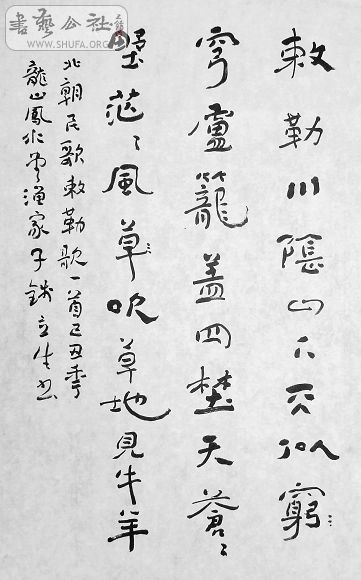 書藝公社
WWW.SHUFA.ORG
敕勒川陰山下天似窮
穹盧籠蓋四埜天蒼〻
茫〻風草吹草地見牛羊
北朝民歌敕勒歌一首己丑季
龍山鳳水漁家子立生書